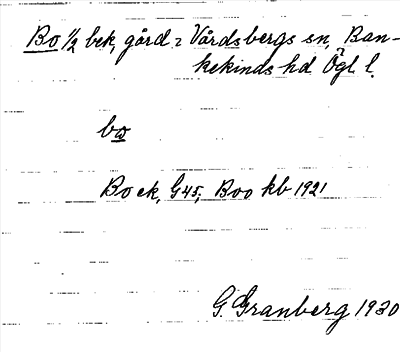 Bo 1/2 bek, gård i Vårdsbergs sn, Ban-
kekinds hd Ögl l.
bω
Bo ek, G45, Boo kb 1921
G. Granberg 1930